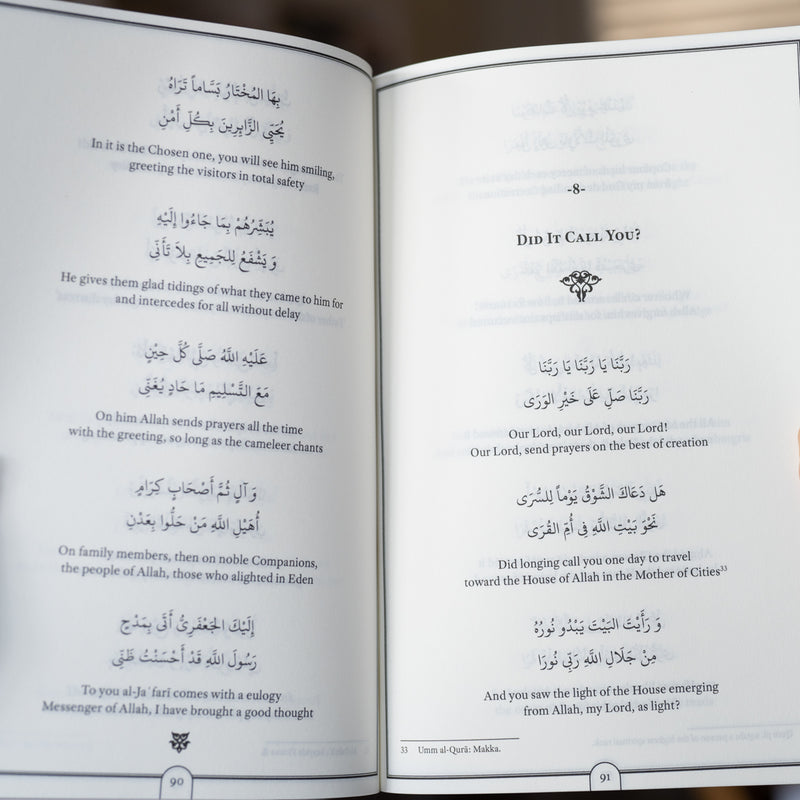 بِهَا المُخْتَارُ بَسَّاماً تَرَاهُ
يُحَيِّي الزَّايِرِينَ بِكُلِّ أَمْنِ
In it is the Chosen one, you will see him smiling,
greeting the visitors in total safety
يُبَشِّرُهُمْ بِمَا جَاءُوا إِلَيْهِ
وَ يَشْفَعُ لِلجَمِيعِ بِلاَ تَأَنِّي
He gives them glad tidings of what they came to him for
and intercedes for all without delay
عَلَيْهِ اللَّهُ صَلَّى كُلَّ حِيْنٍ
مَعَ التَّسْلِيمِ مَا حَادٍ يُغَنِّي
On him Allah sends prayers all the time
with the greeting, so long as the cameleer chants
وَ آلٍ ثُمَّ أَصْحَابٍ كِرَامٍ
أُهَيْلِ اللَّهِ مَنْ حَلُّوا بِعَدْنِ
On family members, then on noble Companions,
the people of Allah, those who alighted in Eden
إِلَيْكَ الجَعْفَرِىُّ أَتَى بِمَدْحٍ
رَسُولَ اللَّهِ قَدْ أَحْسَنْتُ ظَنِّى
To you al-Jaʿfarī comes with a eulogy
Messenger of Allah, I have brought a good thought
90
-8-
DID IT CALL YOU?
رَبَّنَا يَا رَبَّنَا يَا رَبَّنَا
رَبَّنَا صَلِّ عَلَى خَيْرِ الوَرَى
Our Lord, our Lord, our Lord!
Our Lord, send prayers on the best of creation
هَل دَعَاكَ الشَّوْقُ يَوْماً لِلسُّرَى
نَحْوَ بَيْتِ اللَّهِ فِى أُمِّ القُرَى
Did longing call you one day to travel
toward the House of Allah in the Mother of Cities³³
وَ رَأَيْتَ البَيْتَ يَبْدُو نُورُهُ
مِنْ جَلَالِ اللَّهِ رَبِّى نُورَا
And you saw the light of the House emerging
from Allah, my Lord, as light?
33 Umm al-Qurā: Makka.
91